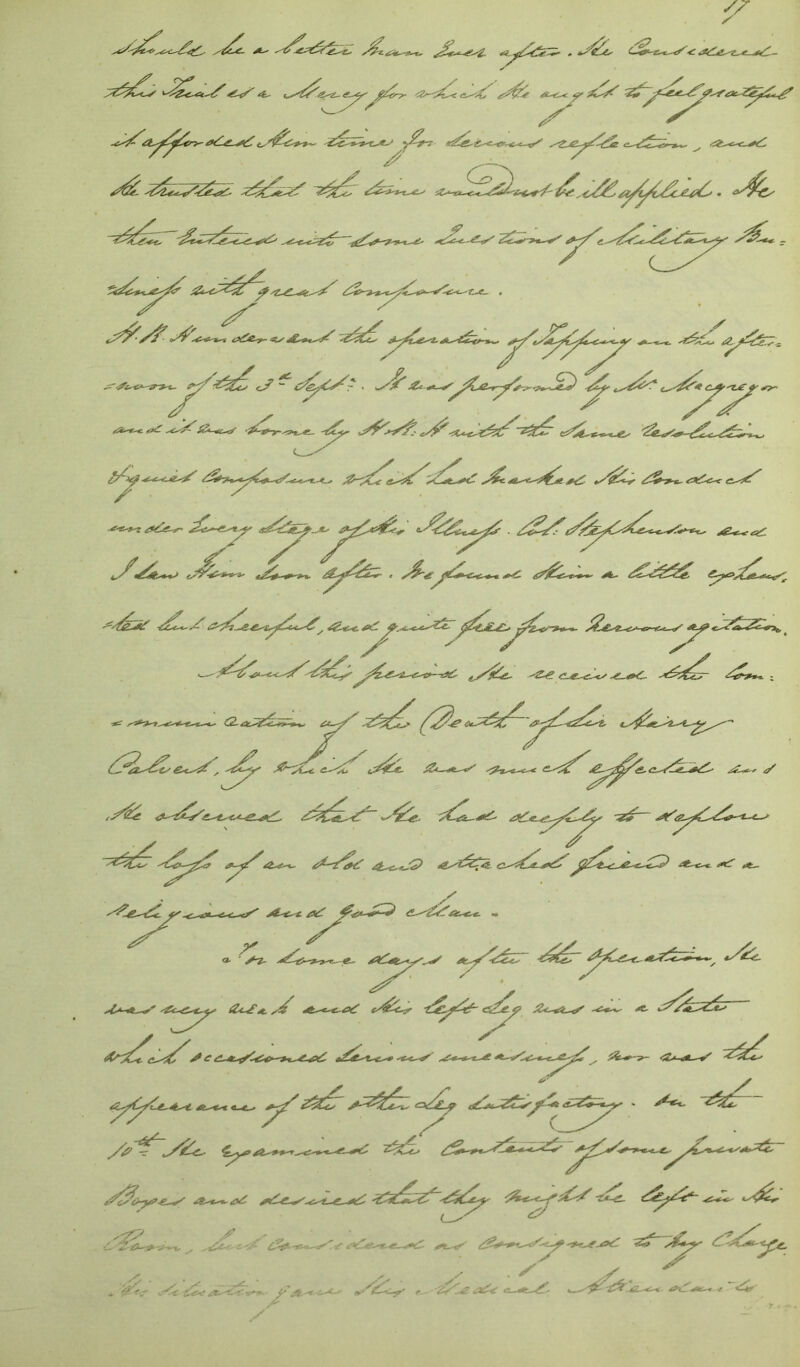 17
should be a better man ever after. He considered
this Trial as a Mercy for which He ought to feel grateful
it afforded Him time for serious reflection, and
He trusted that the time would not be ill applied. He
then entered into some questions of Military Bu=
siness with great Composure.
H.R. Hss underwent the operation of Tapping on the after=
=noon of the 3d Sept: . It was performed by Mr Macgregor
and it was borne by H.R.H with the same resolution
& quiet Composure which had marked His Conduct
under every stage of His Illness. Col: Stephenson and
I saw Him soon after. We found Him a little exhaus,
=ted but cheerful, and quite free from nervous agitation.
About this period He received the com:
=munication of the Death of Mr
, by which He was much affected and
He observed that He had deeply to deplore
the loss of an old and attached friend and a
Religious and good Man.
For some days after the Operation, He
was very weak and His left leg was in a State
which occasioned serious uneasiness, nor was the
appearance of the other leg satisfactory. On the
10th He examined the Contents of some private
Boxes and desired that they might be left in His
Room, but considered as consigned to my Charge
His situation gave His Medical Attendants